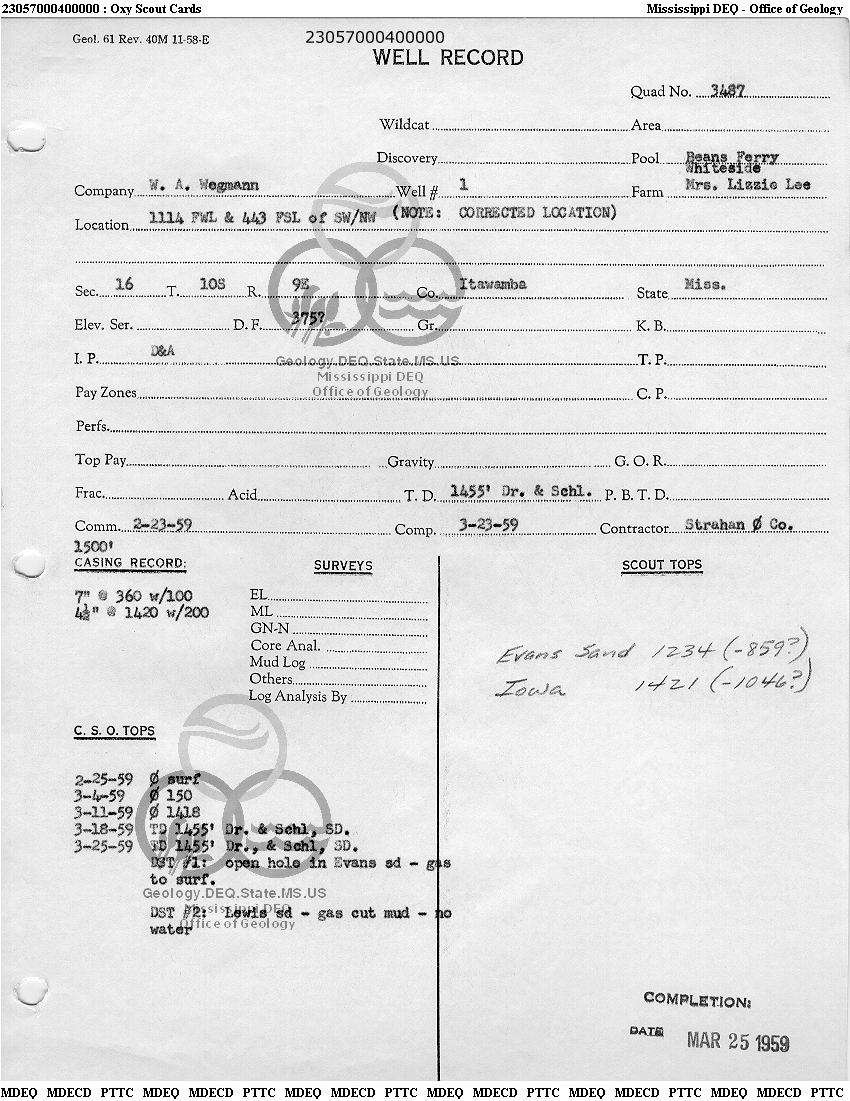 23057000400000 : Oxy Scout Cards Mississippi DEQ - Office of Geology
Geol. 61 Rev. 40M 11-58-E 23057000400000
WELL RECORD
Quad No. 3487
Wildcat Area
Discovery Pool Beans Ferry
Whiteside
Company W. A. Wegmann Well # 1 Farm Mrs. Lizzie Lee
Location 1114 FWL & 443 FSL of SW/NW (NOTE: CORRECTED LOCATION)
Sec. 16 T. 10S R. 9E Co. Itawamba State Miss.
Elev. Ser. D. F. 375? Gr. K. B.
I. P. D&A T. P.
Geology.DEQ.State.MS.US
Mississippi DEQ
Office of Geology
Pay Zones C. P.
Perfs.
Top Pay Gravity G. O. R.
Frac. Acid T. D. 1455' Dr. & Schl. P. B. T. D.
Comm. 2-23-59 Comp. 3-23-59 Contractor Strahan Ø Co.
1500'
CASING RECORD: SURVEYS SCOUT TOPS
7" @ 360 w/100 EL
4½" @ 1420 w/200 ML
GN-N
Core Anal.
Mud Log
Others
Log Analysis By
Evans Sand 1234 (-859?)
Iowa 1421 (-1046?)
C. S. O. TOPS
2-25-59 Ø surf
3-4-59 Ø 150
3-11-59 Ø 1418
3-18-59 TD 1455' Dr. & Schl, SD.
3-25-59 TD 1455' Dr., & Schl, SD.
DST #1: open hole in Evans sd - gas
to surf.
Geology.DEQ.State.MS.US
Mississippi DEQ
Office of Geology
DST #2: Lewis sd - gas cut mud - no
water
COMPLETION:
DATE MAR 25 1959
MDEQ MDECD PTTC MDEQ MDECD PTTC MDEQ MDECD PTTC MDEQ MDECD PTTC MDEQ MDECD PTTC MDEQ MDECD PTTC